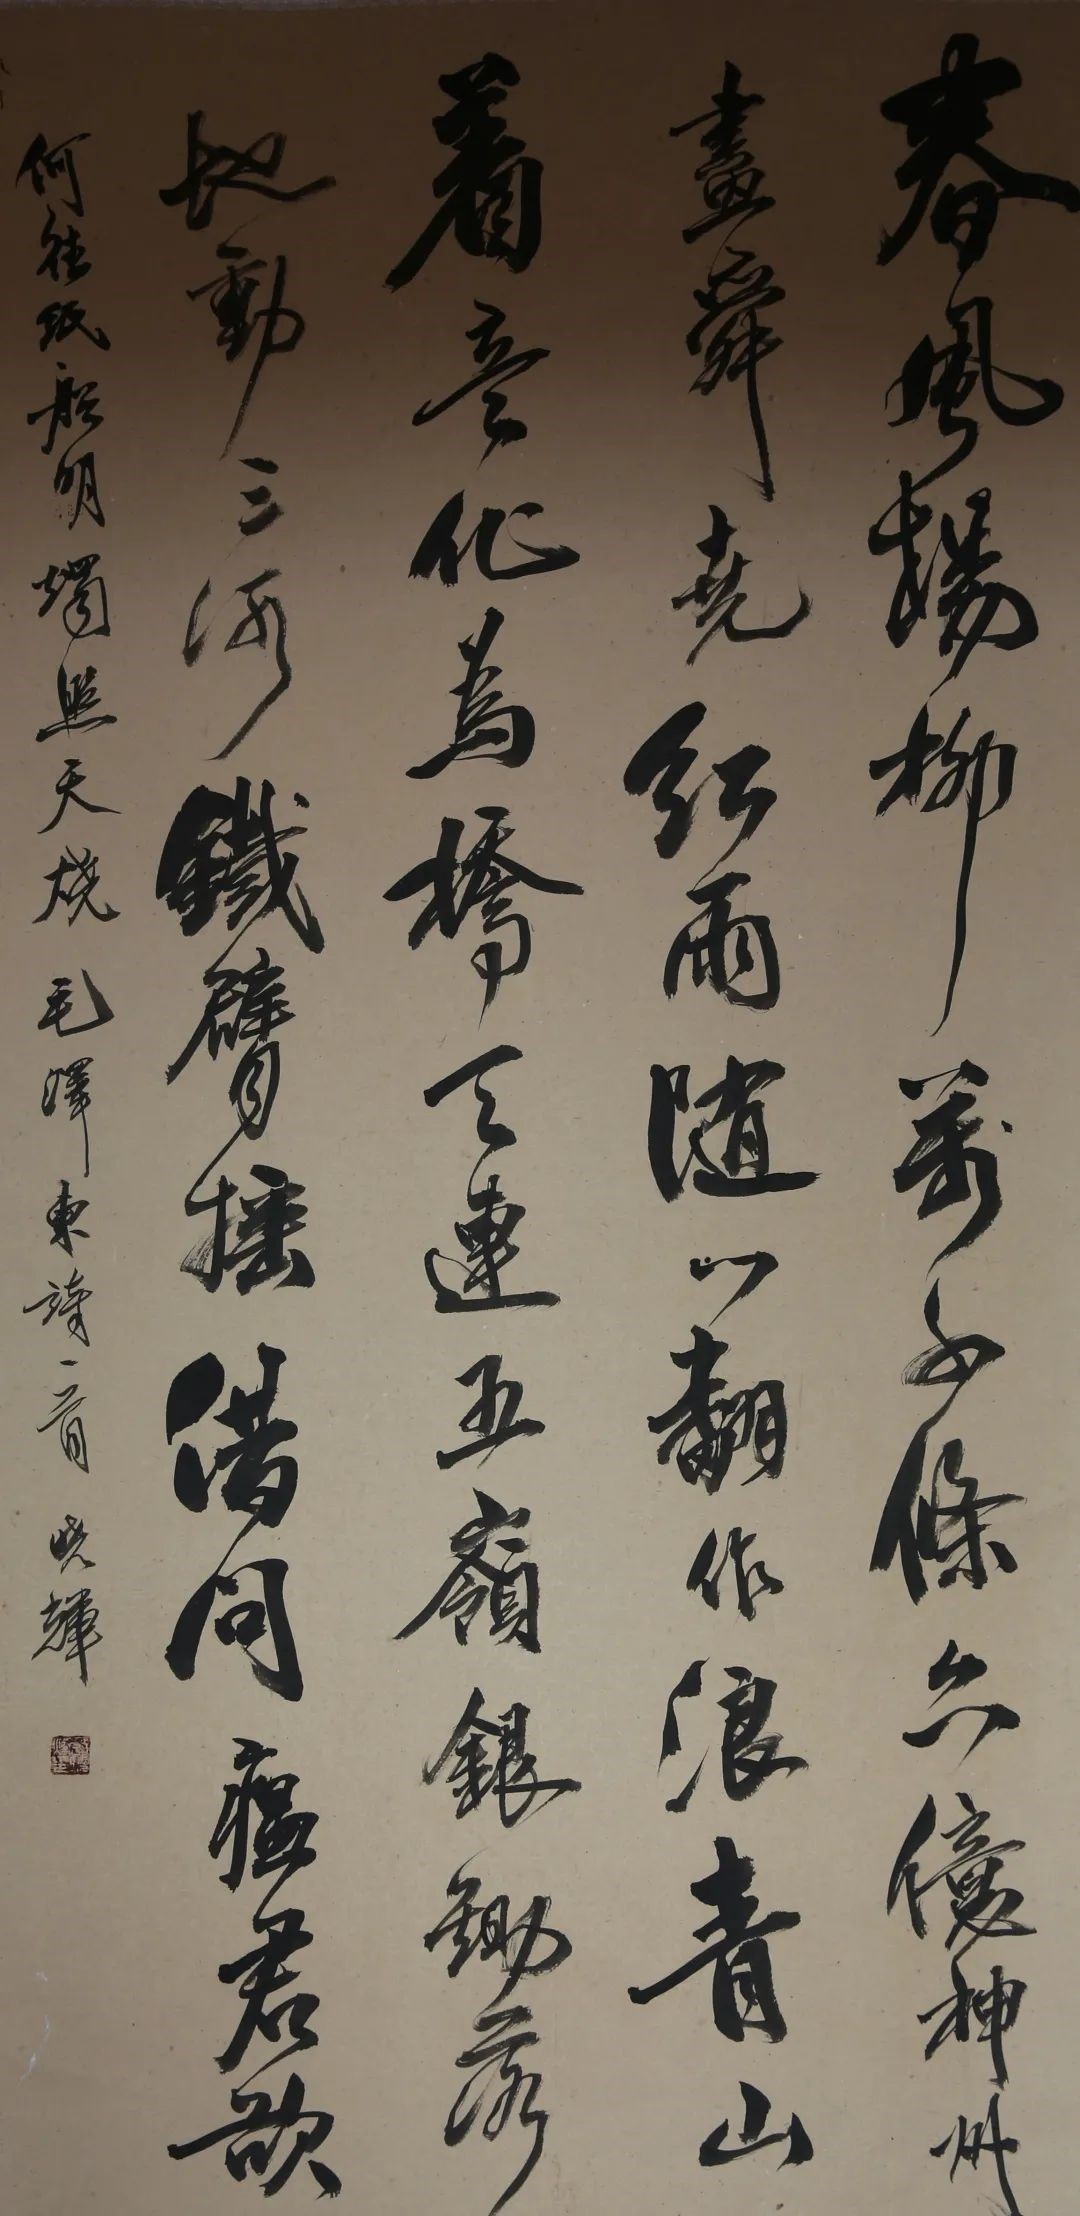 春風楊柳萬千條六億神州
盡舜堯紅雨随心翻作浪青山
着意化為橋天連五嶺銀鋤落
地動三河鐵臂摇借問瘟君欲
何往纸船明燭照天烧 毛澤東詩一首 晓輝